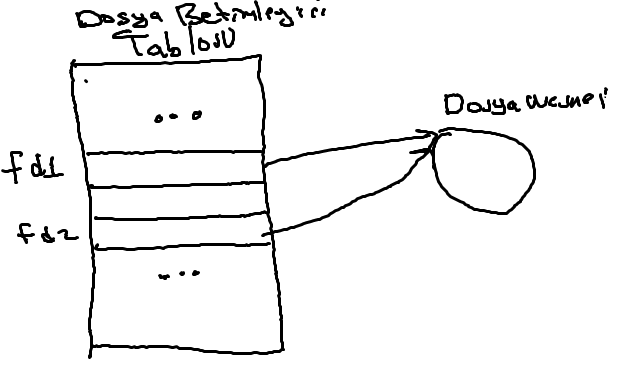 Dosya Betimleyici
Tablosu
...
fd1
fd2
...
Dosya Nesnesi